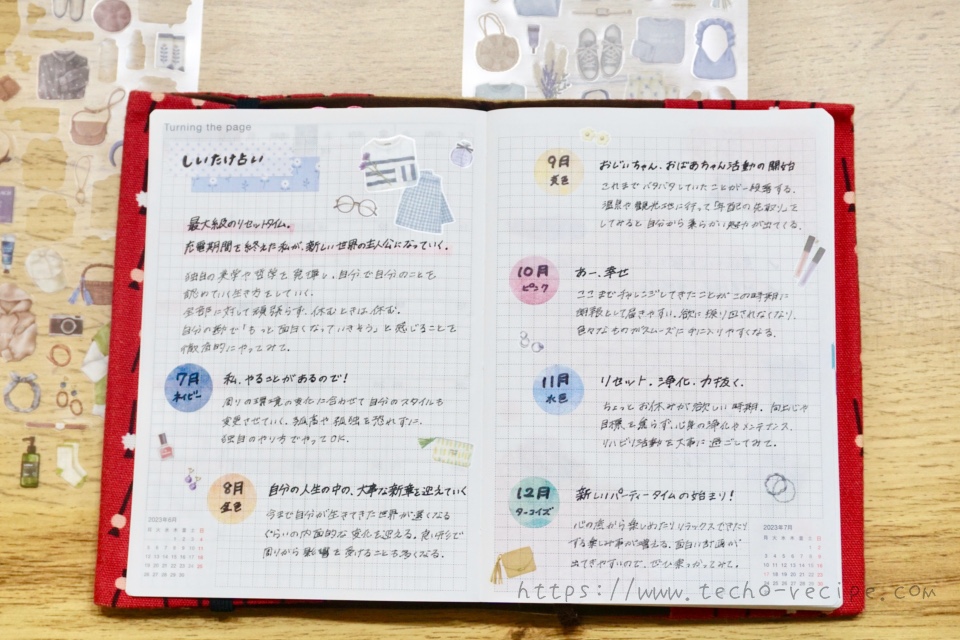 Turning the page
しいたけ占い
最大級のリセットタイム。
充電期間を終えた私が、新しい世界の主人公になっていく。
独自の美学や哲学を発揮し、自分で自分のことを
認めていく生き方をしていく。
全部に対して頑張らず、休むときは休む。
自分の勘で「もっと面白くなっていきそう」と感じることを
徹底的にやってみて。
7月
ネイビー
私、やることがあるので!
周りの環境の変化に合わせて自分のスタイルも
変更させていく。孤高や孤独を恐れずに、
独自のやり方でやってOK。
8月
金色
自分の人生の中の、大事な新章を迎えていく
今まで自分が生きてきた世界が遠くなる
ぐらいの内面的な変化を迎える。良い形で
周りから影響を受けることも多くなる。
2023年6月
月 火 水 木 金 土 日
1 2 3 4
5 6 7 8 9 10 11
12 13 14 15 16 17 18
19 20 21 22 23 24 25
26 27 28 29 30
9月
黄色
おじいちゃん、おばあちゃん活動の開始
これまでバタバタしていたことが一段落する。
温泉や観光地に行って年配の花取りとして
してみると自分から柔らかい魅力が出てくる。
10月
ピンク
あー、幸せ
ここまでチャレンジしてきたことがこの時期に
開報として届きやすい。欲に振り回されなくなり、
色々なものがスムーズに手に入りやすくなる。
11月
水色
リセット、浄化、力抜く。
ちょっとお休みが欲しい時期。向上心や
目標を焦らず、心身の浄化やメンテナンス、
リハビリ活動を大事に過ごしてみて。
12月
ターコイズ
新しいパーティータイムの始まり!
心の底から楽しめたりリラックスできたり
する楽しみ事が増える。面白い計画が
出てきやすいので、ぜひ乗っかってみて。
2023年7月
月 火 水 木 金 土 日
1 2
3 4 5 6 7 8 9
10 11 12 13 14 15 16
17 18 19 20 21 22 23
24 25 26 27 28 29 30
https://www.techo-recipe.com